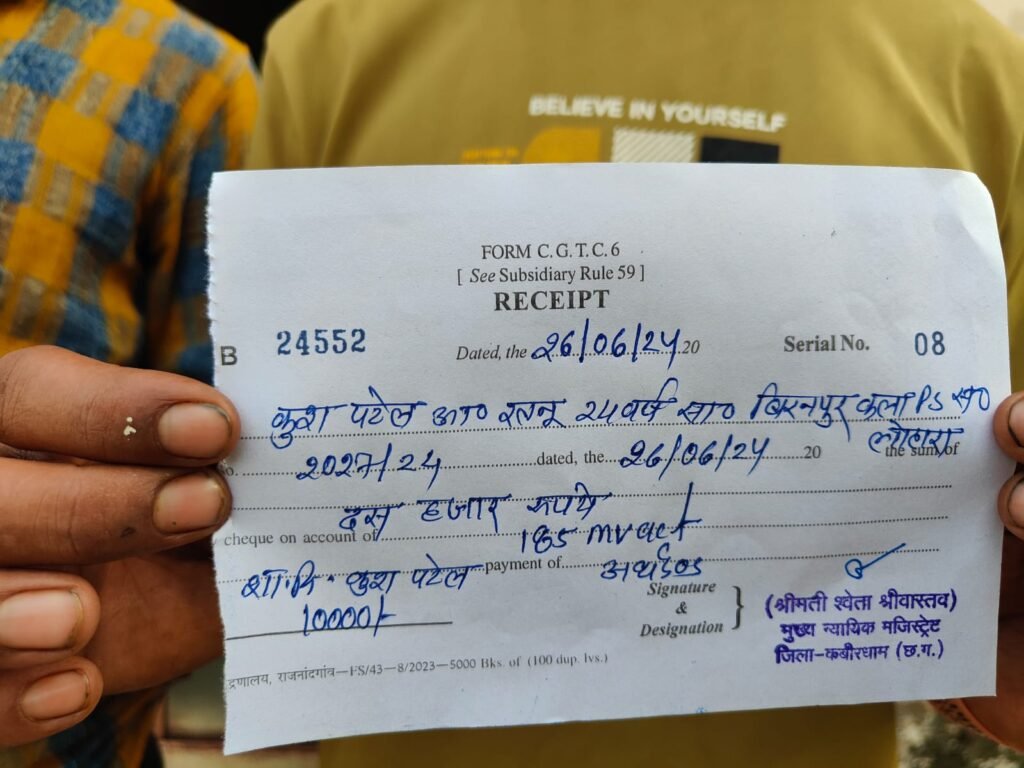 BELIEVE IN YOURSELF
FORM C. G. T. C. 6
[ See Subsidiary Rule 59 ]
RECEIPT
B 24552 Dated, the 26/06/24 20 Serial No. 08
कुश पटेल आ० रतनू 24 वर्ष सा० बिरनपुर कला PS स० लोहारा
o. 2027/24 dated, the 26/06/24 20 the sum of
दस हजार रुपये
cheque on account of 185 mv act
शा.वि. कुश पटेल payment of अर्थदण्ड
10000/-
Signature
&
Designation
(श्रीमती श्वेता श्रीवास्तव)
मुख्य न्यायिक मजिस्ट्रेट
जिला-कबीरधाम (छ.ग.)
द्रणालय, राजनांदगांव—FS/43—8/2023—5000 Bks. of (100 dup. lvs.)